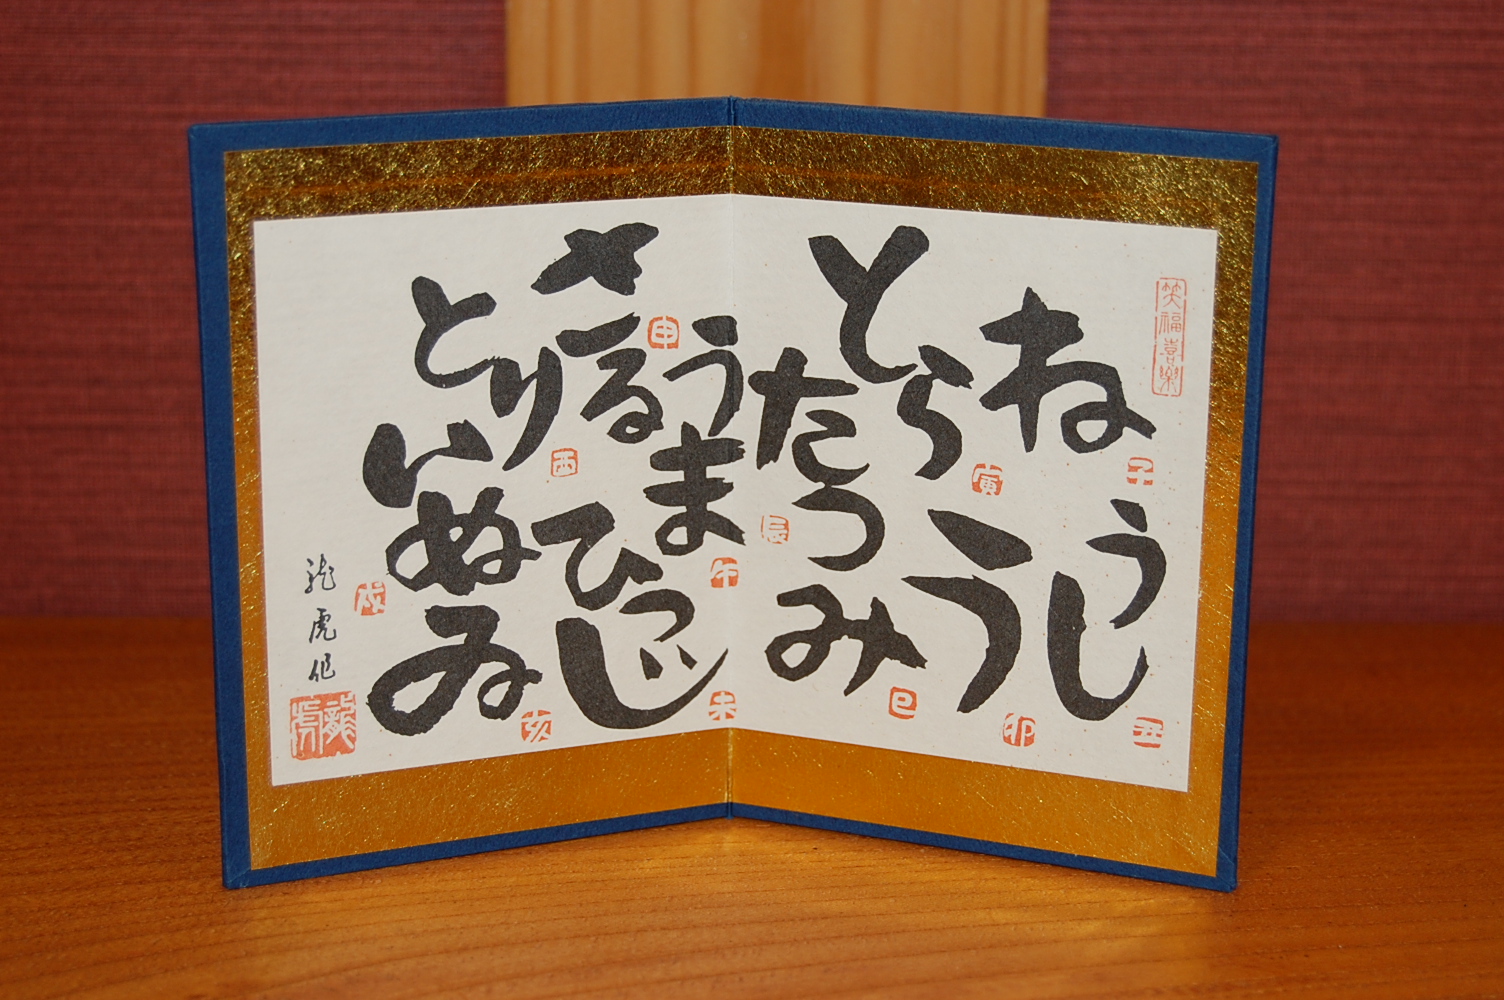 笑福喜楽
ね
子
うし
丑
とら
寅
う
卯
たつ
辰
み
巳
うま
午
ひつじ
未
さる
申
とり
酉
いぬ
戌
ゐ
亥
龍虎作
龍虎